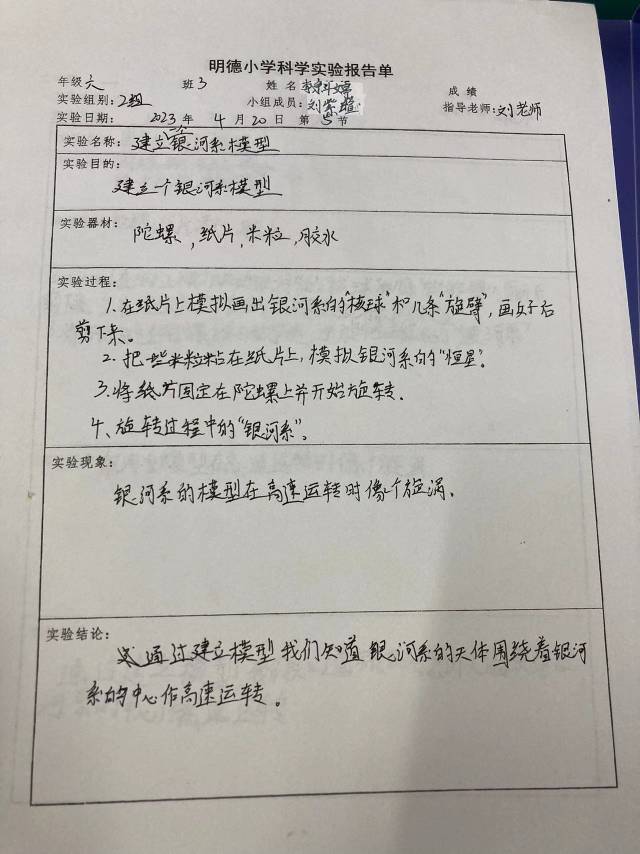 明德小学科学实验报告单
年级六 班3 姓名 成绩
实验组别：2组 小组成员：刘紫璇 指导老师：刘老师
实验日期： 2023 年 4 月 20 日 第 5 节
实验名称：建立个银河系模型
实验目的：
建立一个银河系模型
实验器材： 陀螺，纸片，米粒，胶水
实验过程：
1.在纸片上模拟画出银河系的“核球”和几条“旋臂”，画好后
剪下来。
2.把一些米粒粘在纸片上，模拟银河系的“恒星”。
3.将纸片固定在陀螺上并开始旋转．
4、旋转过程中的“银河系”。
实验现象：
银河系的模型在高速运转时像个旋涡．
实验结论：
通过建立模型我们知道银河系的天体围绕着银河
系的中心作高速运转。